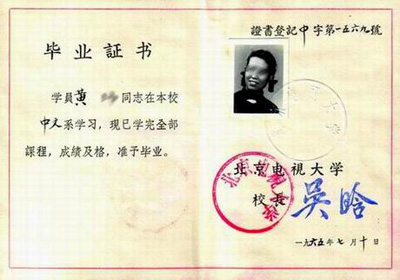 證書登記中字第一五六九號
毕业証书
学員黄 同志在本校
中文系学习，現已学完全部
課程，成績及格，准予毕业。
北京电視大学
校長 吳晗
一九六五年七月十日